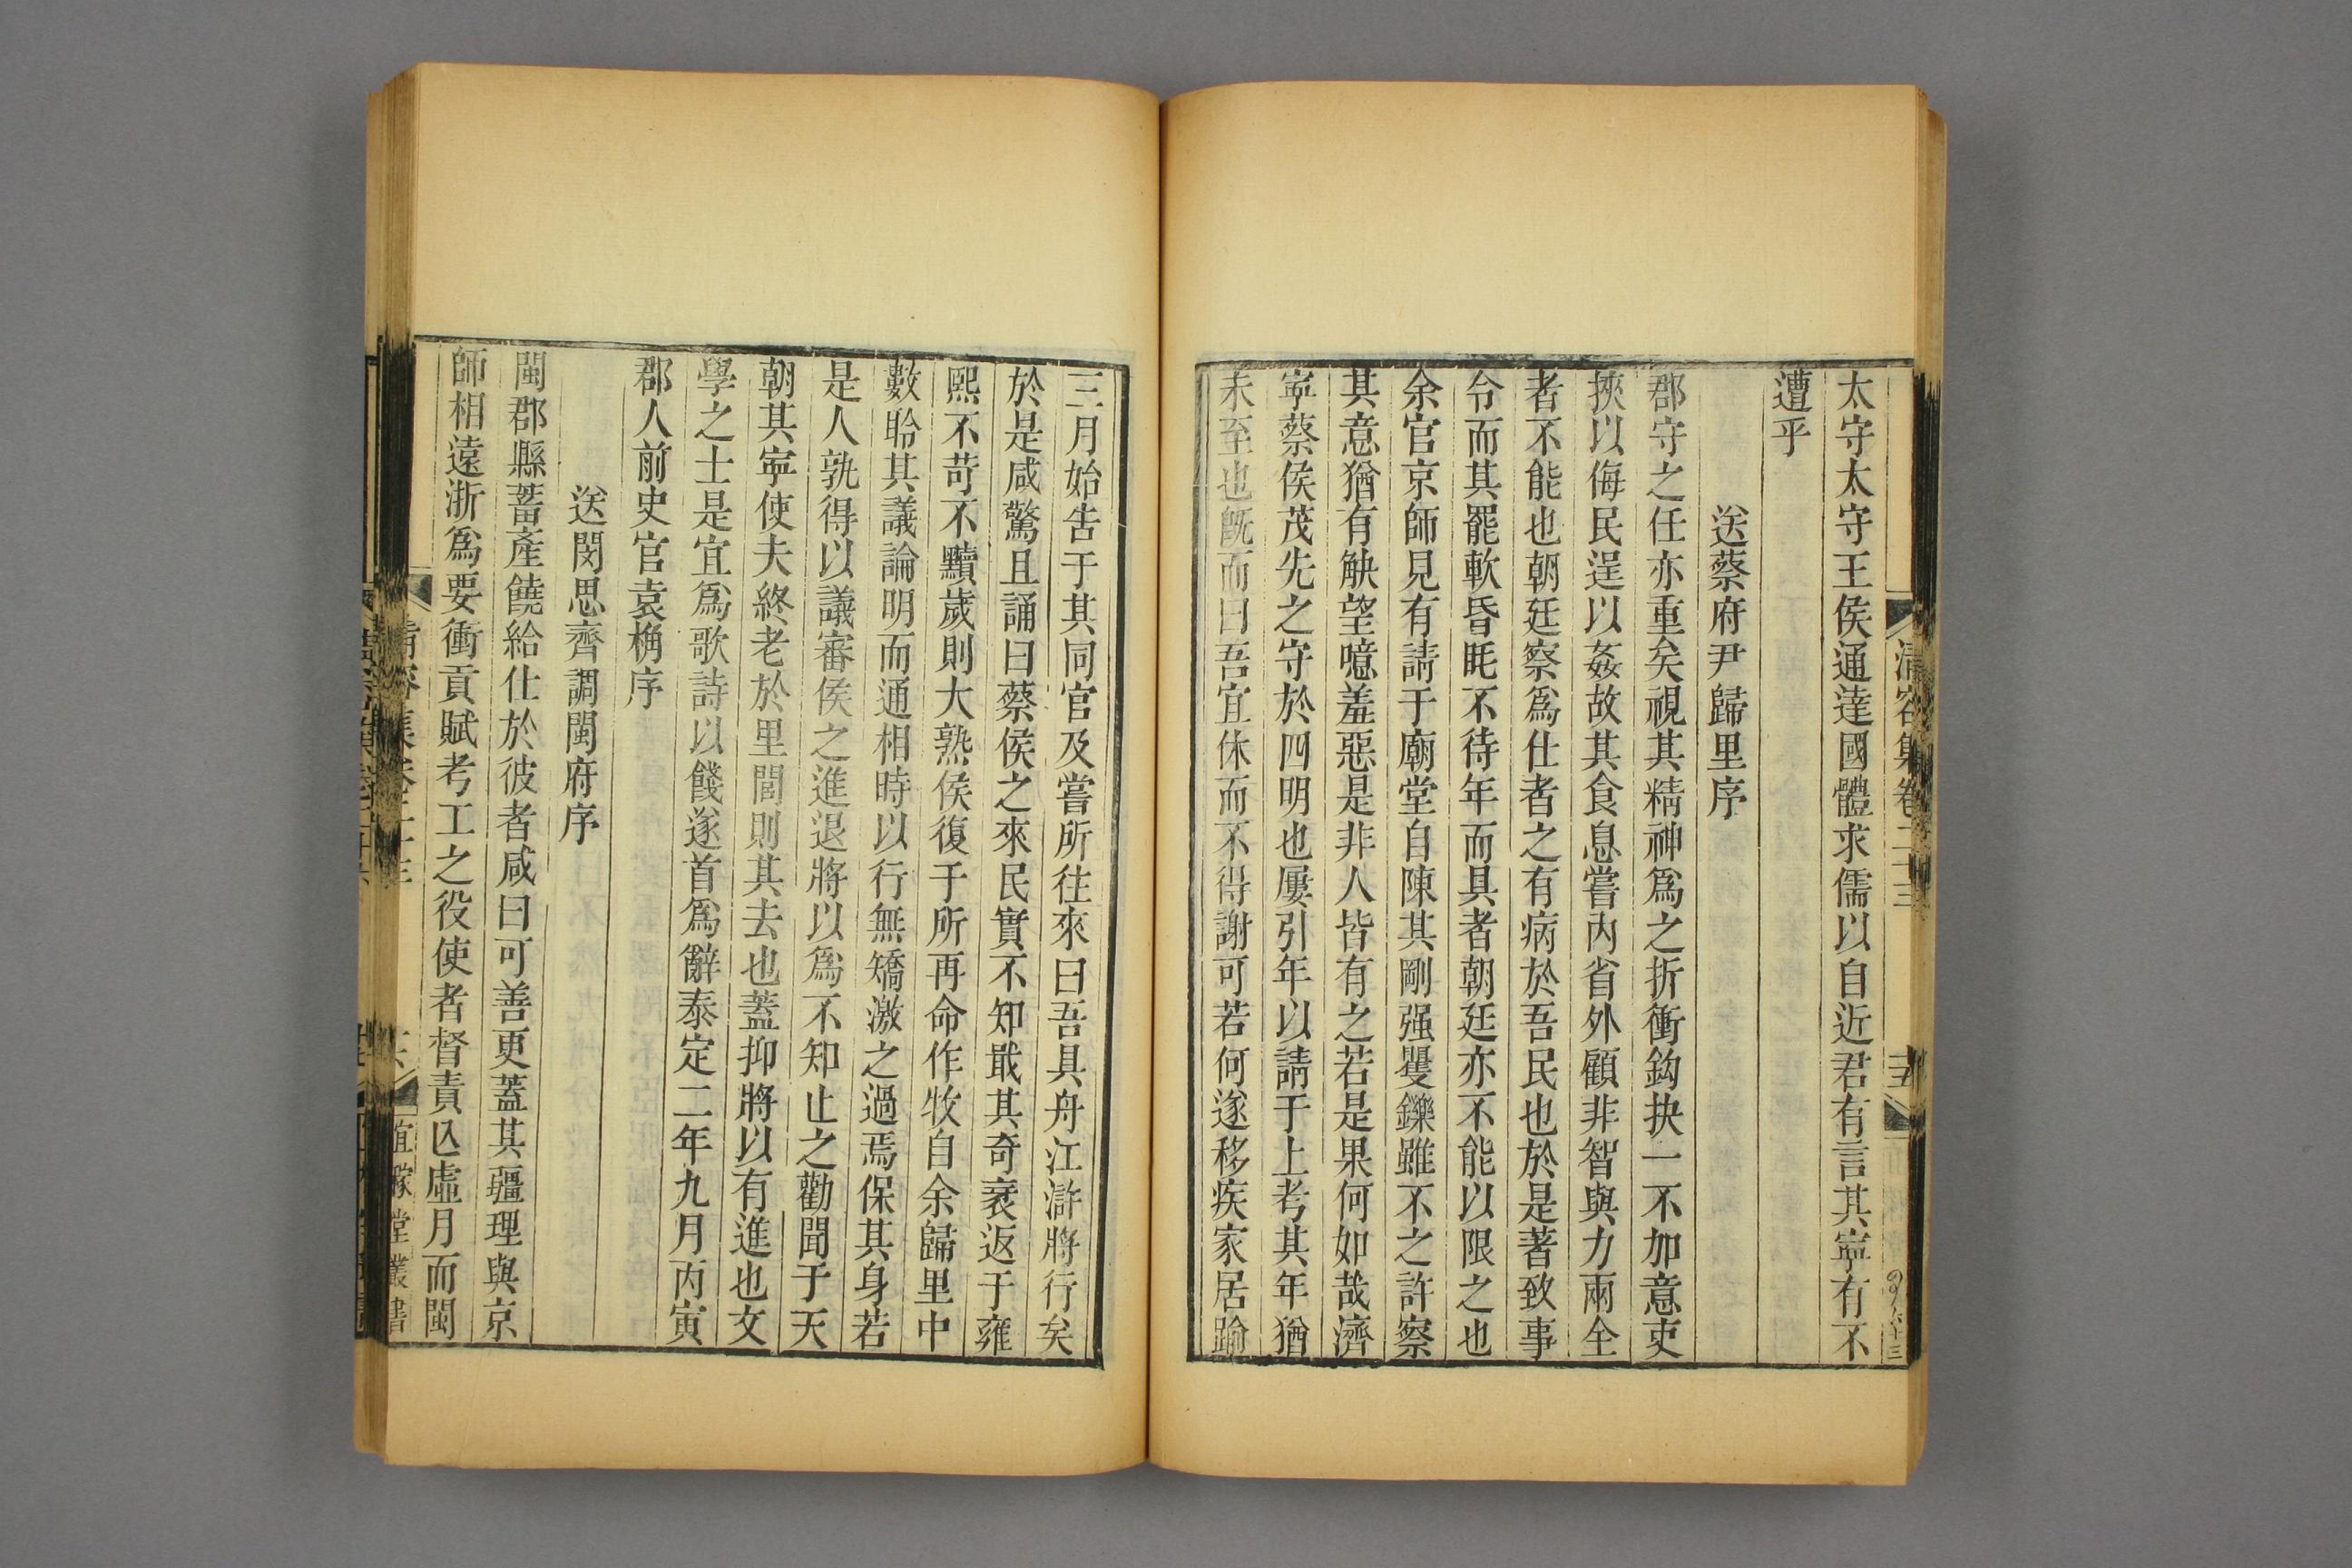 太守太守王侯通達國體求儒以自近君有言其寧有不
遭乎
送蔡府尹歸里序
郡守之任亦重矣視其精神爲之折衝鈎抉一不加意吏
挾以侮民逞以姦故其食息嘗內省外顧非智與力兩全
者不能也朝廷察爲仕者之有病於吾民也於是著致事
令而其罷軟昏眊不待年而具者朝廷亦不能以限之也
余官京師見有請于廟堂自陳其剛强矍鑠雖不之許察
其意猶有觖望噫羞惡是非人皆有之若是果何如哉濟
寧蔡侯茂先之守於四明也屢引年以請于上考其年猶
未至也旣而曰吾宜休而不得謝可若何遂移疾家居踰
三月始吿于其同官及嘗所往來曰吾具舟江滸將行矣
於是咸驚且誦曰蔡侯之來民實不知戢其奇衺返于雍
熙不苛不黷歲則大熟侯復于所再命作牧自余歸里中
數聆其議論明而通相時以行無矯激之過焉保其身若
是人孰得以議審侯之進退將以爲不知止之勸聞于天
朝其寧使夫終老於里閭則其去也蓋抑將以有進也文
學之士是宜爲歌詩以餞遂首爲辭泰定二年九月丙寅
郡人前史官袁桷序
送閔思齊調閩府序
閩郡縣蓄產饒給仕於彼者咸曰可善更蓋其疆理與京
師相遠浙爲要衝貢賦考工之役使者督責亾虛月而閩
清容集卷二十三
十五
清容集卷二十三
十六
宜稼堂叢書